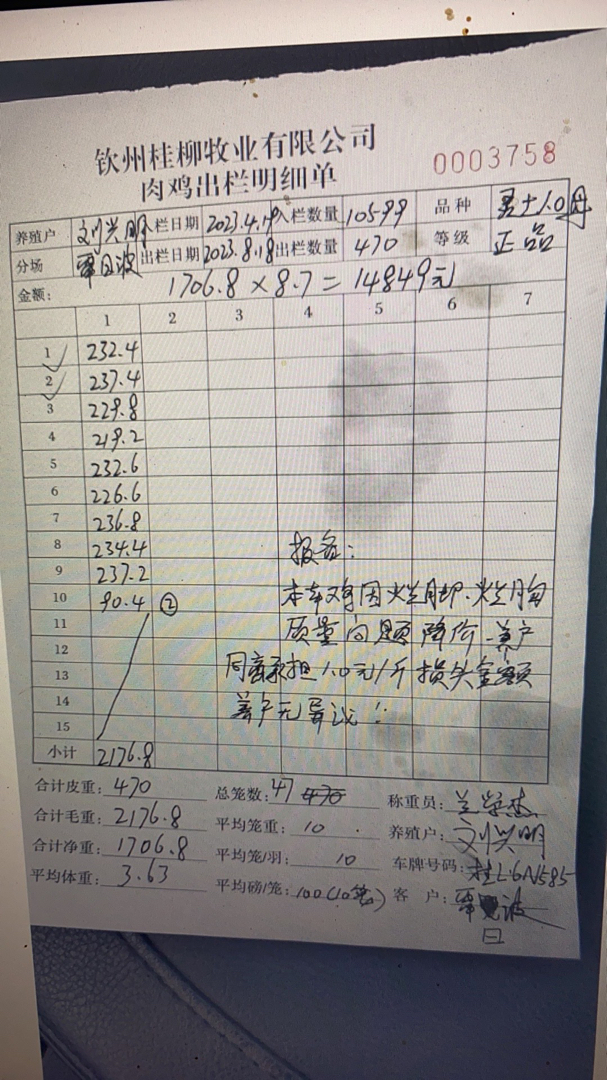 钦州桂柳牧业有限公司
肉鸡出栏明细单
0003758
养殖户 刘兴明 入栏日期 2023.4.19 入栏数量 10599 品种
分场 覃日波 出栏日期 2023.8.18 出栏数量 470 等级 正品
金额: 1706.8 × 8.7 = 14849元
1 2 3 4 5 6 7
1 232.4
2 237.4
3 229.8
4 219.2
5 232.6
6 226.6
7 236.8
8 234.4
9 237.2
10 90.4 ②
11
12
13
14
15
报告:
本车鸡因烂脚.烂胸
质量问题降价.养户
同意承担1.0元/斤损失金额
养户无异议!
小计 2176.8
合计皮重: 470 总笼数: 47 470 称重员:
合计毛重: 2176.8 平均笼重: 10 养殖户: 刘兴明
合计净重: 1706.8 平均笼/羽: 10 车牌号码: 桂L6N585
平均体重: 3.63 平均磅/笼: 100(10笼) 客户: 覃波
日